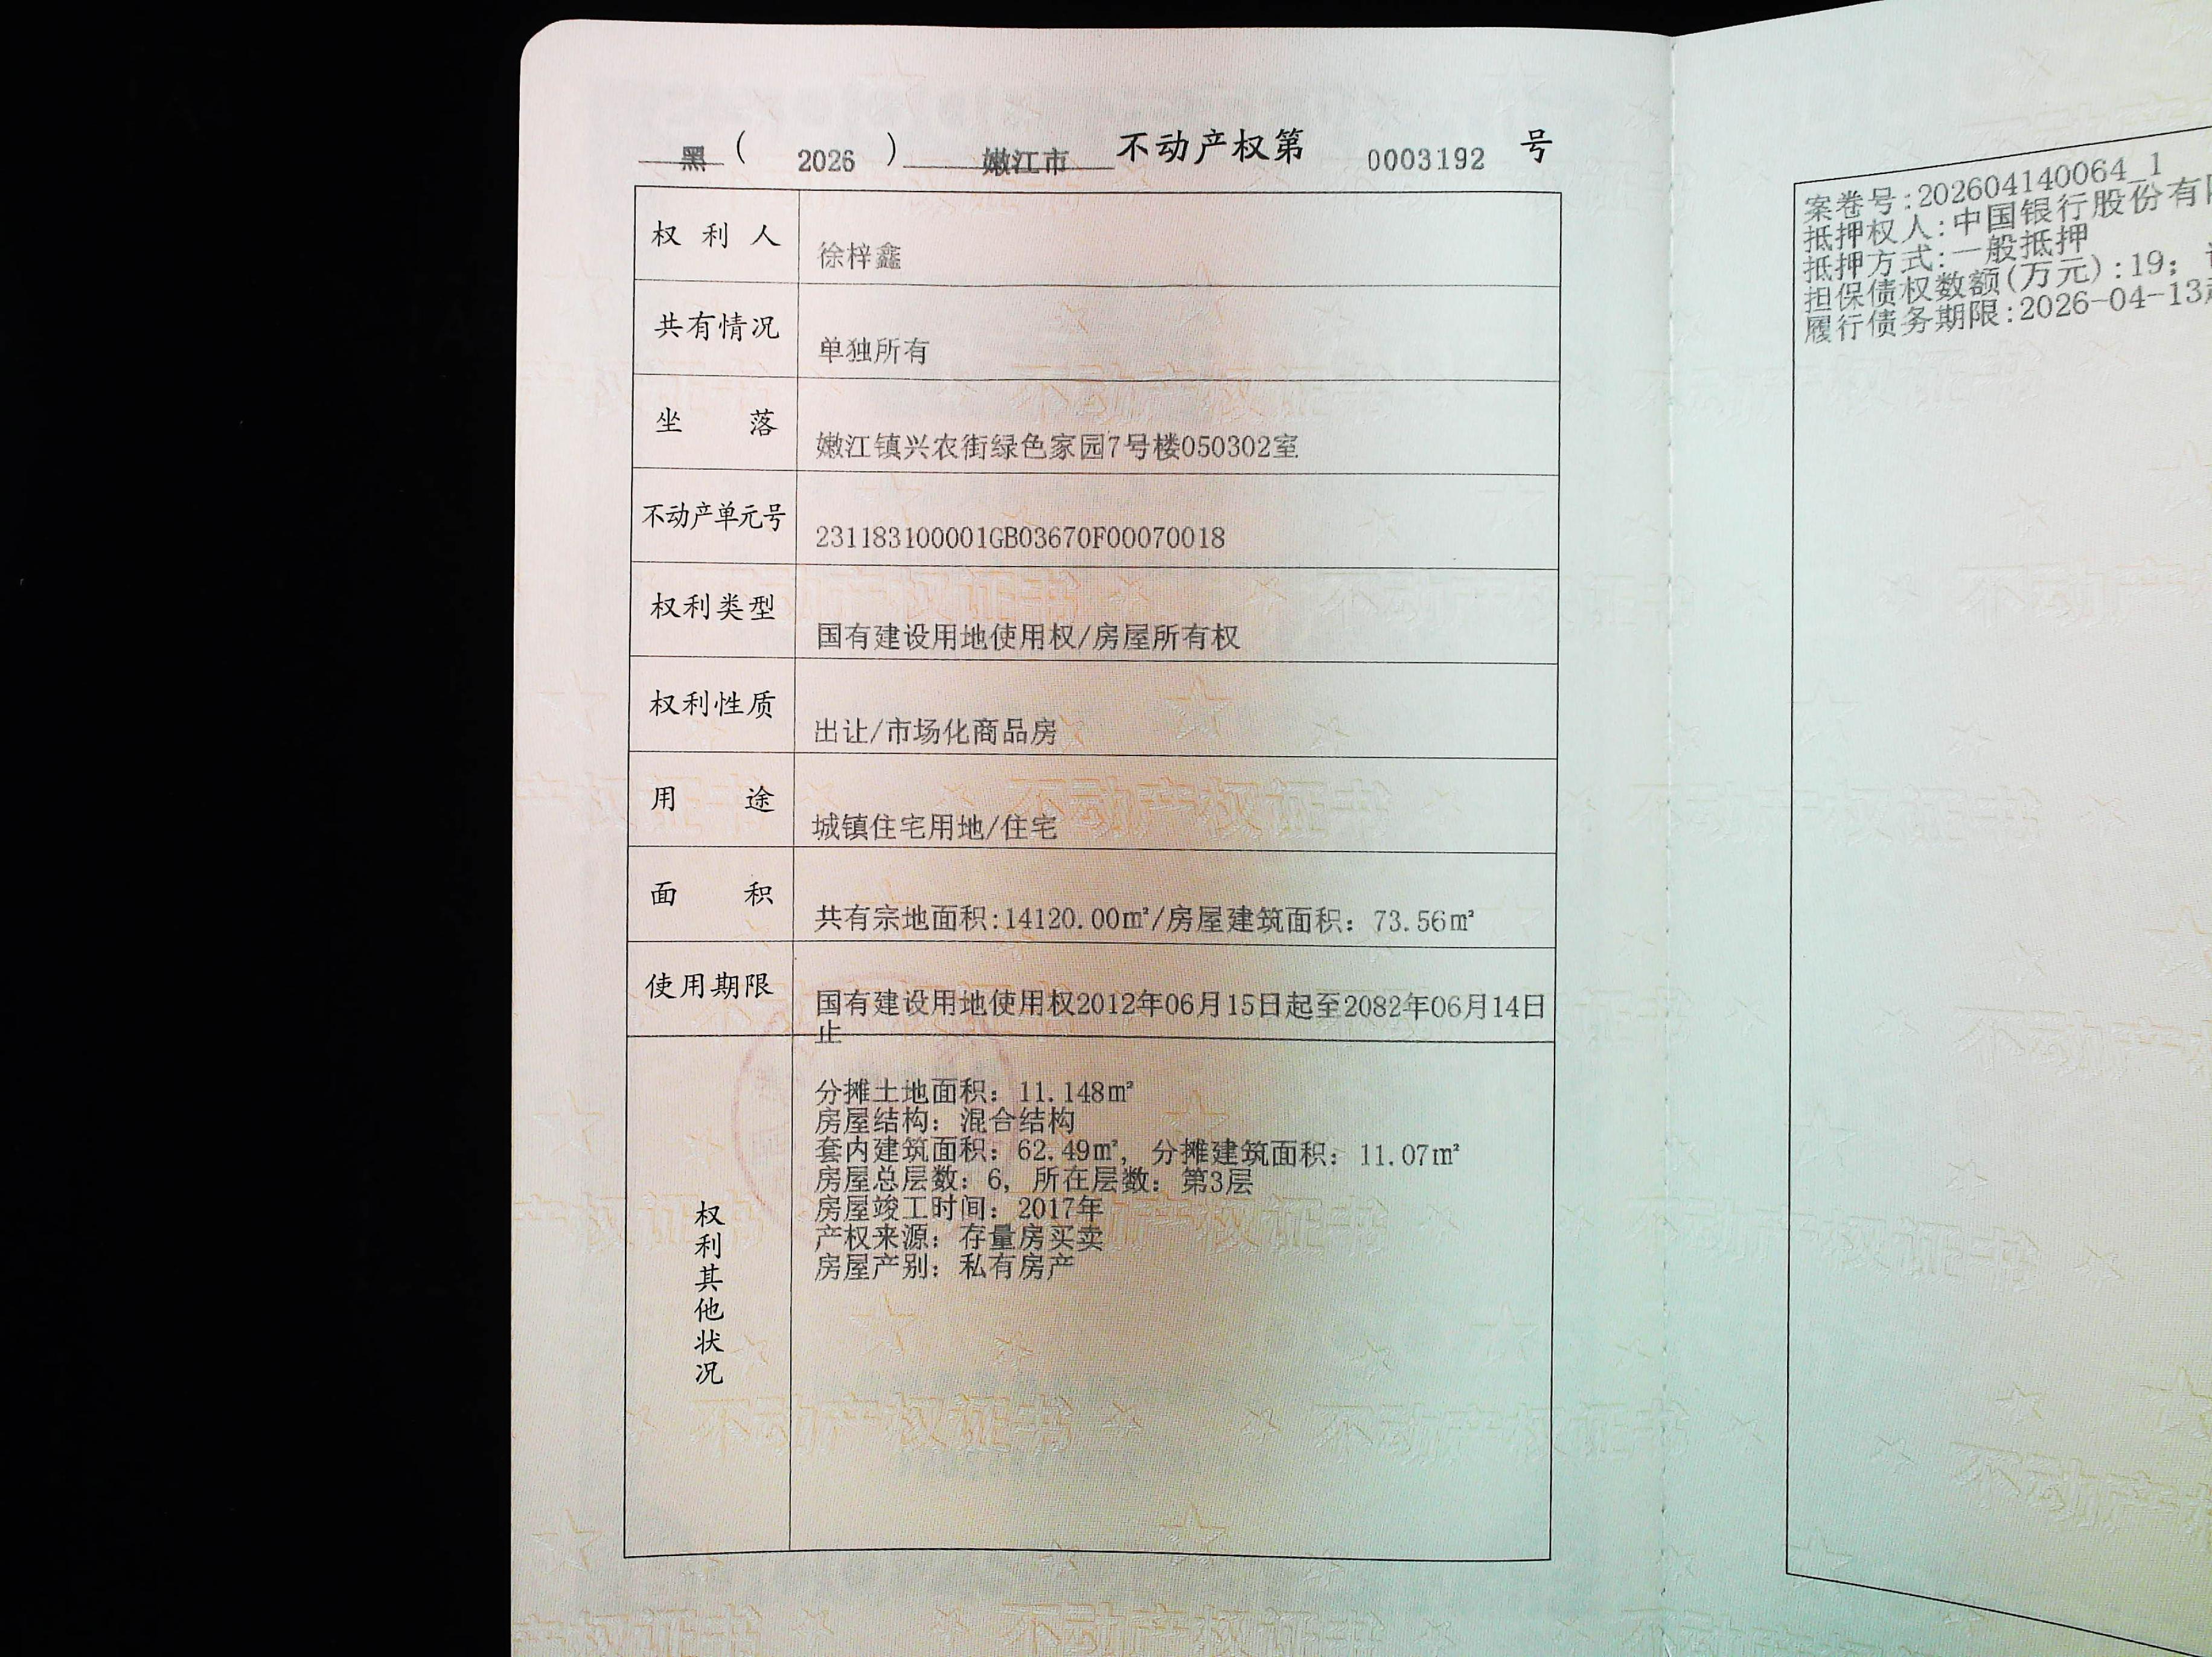 黑 ( 2026 ) 嫩江市 不动产权第 0003192 号
权利人 徐梓鑫
共有情况 单独所有
坐落 嫩江镇兴农街绿色家园7号楼050302室
不动产单元号 231183100001GB03670F00070018
权利类型 国有建设用地使用权/房屋所有权
权利性质 出让/市场化商品房
用途 城镇住宅用地/住宅
面积 共有宗地面积:14120.00㎡/房屋建筑面积：73.56㎡
使用期限 国有建设用地使用权2012年06月15日起至2082年06月14日
止
权利其他状况
分摊土地面积：11.148㎡
房屋结构：混合结构
套内建筑面积：62.49㎡，分摊建筑面积：11.07㎡
房屋总层数：6，所在层数：第3层
房屋竣工时间：2017年
产权来源：存量房买卖
房屋产别：私有房产
案卷号:202604140064_1
抵押权人:中国银行股份有
抵押方式:一般抵押
担保债权数额(万元):19；
履行债务期限:2026-04-13